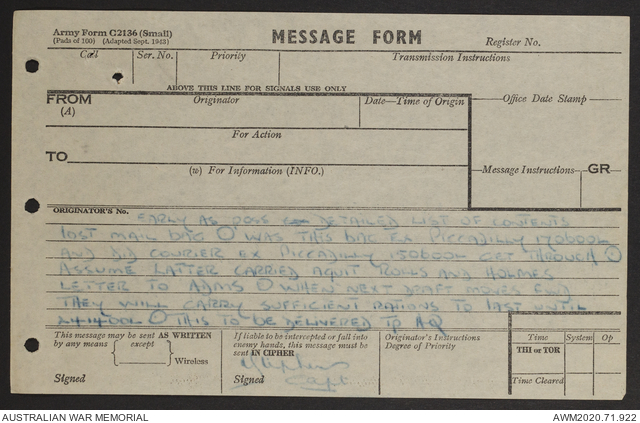 Army Form C2136 (Small)
(Pads of 100) (Adapted Sept. 1943)
MESSAGE FORM
Register No.
Call
Ser. No.
Priority
Transmission Instructions
ABOVE THIS LINE FOR SIGNALS USE ONLY
FROM
(A)
Originator
Date—Time of Origin
Office Date Stamp
For Action
TO
(w) For Information (INFO.)
Message Instructions
GR
ORIGINATOR'S No.
EARLY AS POSS DETAILED LIST OF CONTENTS
LOST MAIL BAG O WAS THIS BAG EX PICCADILLY 170600L
AND DID COURIER EX PICCADILLY 150600L GET THROUGH O
ASSUME LATTER CARRIED ROLLS AND HOLMES
LETTER TO ADAMS O WHEN NEXT DRAFT MOVES FWD
THEY WILL CARRY SUFFICIENT RATIONS TO LAST UNTIL
241400L O THIS TO BE DELIVERED TO
This message may be sent AS WRITTEN
by any means
except
Wireless
Signed
If liable to be intercepted or fall into
enemy hands, this message must be
sent IN CIPHER
Signed
Capt
Originator's Instructions
Degree of Priority
Time
System
Op
THI or TOR
Time Cleared
AUSTRALIAN WAR MEMORIAL
AWM2020.71.922